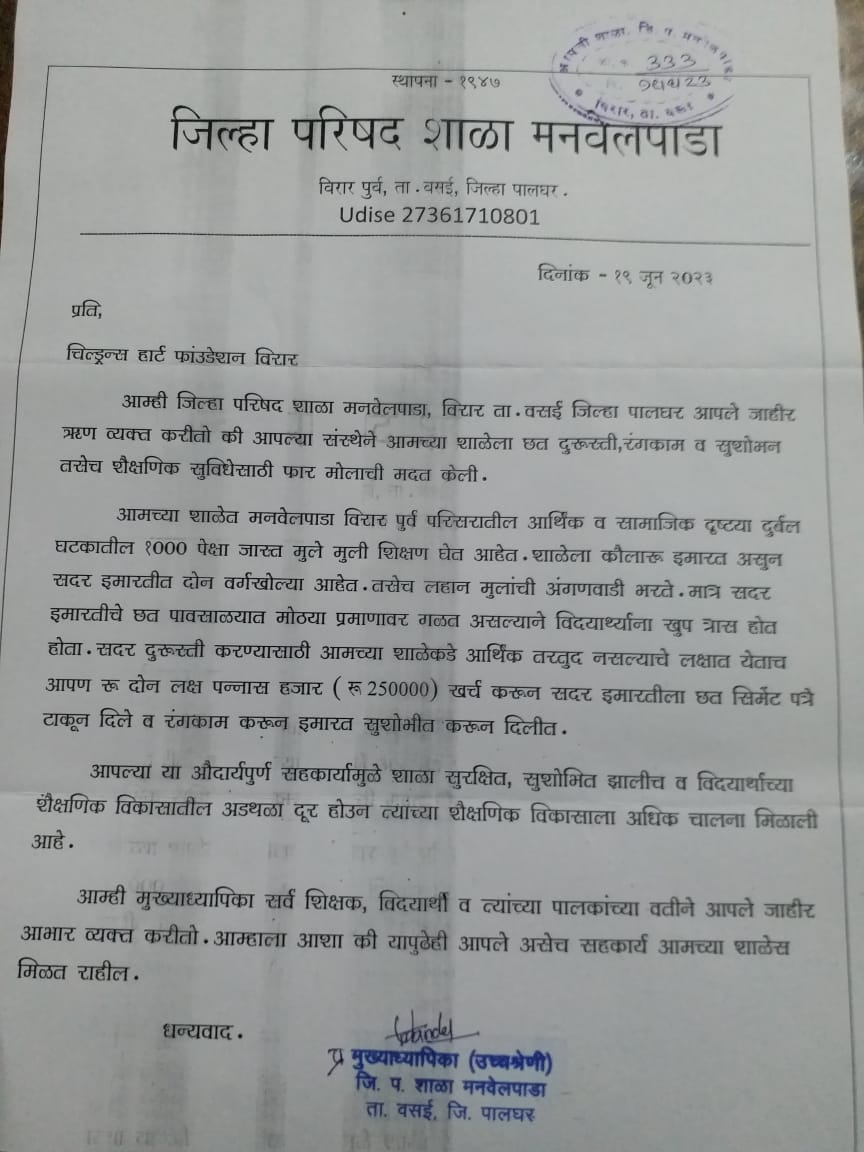 शाळा. जि. प.
333
विरार, ता. वसई
स्थापना - १९४७
जिल्हा परिषद शाळा मनवेलपाडा
विरार पुर्व, ता. वसई, जिल्हा पालघर.
Udise 27361710801
दिनांक - १९ जून २०२३
प्रति,
चिल्ड्रन्स हार्ट फांउडेशन विरार
आम्ही जिल्हा परिषद शाळा मनवेलपाडा, विरार ता. वसई जिल्हा पालघर आपले जाहीर
ऋण व्यक्त करीतो की आपल्या संस्थेने आमच्या शाळेला छत दुरूस्ती,रंगकाम व सुशोभन
तसेच शैक्षणिक सुविधेसाठी फार मोलाची मदत केली.
आमच्या शाळेत मनवेलपाडा विरार पुर्व परिसरातील आर्थिक व सामाजिक दृष्टया दुर्बल
घटकातील १००० पेक्षा जास्त मुले मुली शिक्षण घेत आहेत. शाळेला कौलारू इमारत असुन
सदर इमारतीत दोन वर्गखोल्या आहेत. तसेच लहान मुलांची अंगणवाडी भरते. मात्र सदर
इमारतीचे छत पावसाळयात मोठया प्रमाणावर गळत असल्याने विदयार्थ्यांना खुप त्रास होत
होता. सदर दुरूस्ती करण्यासाठी आमच्या शाळेकडे आर्थिक तरतुद नसल्याचे लक्षात येताच
आपण रू दोन लक्ष पन्नास हजार ( रू 250000) खर्च करून सदर इमारतीला छत सिमेंट पत्रे
टाकून दिले व रंगकाम करून इमारत सुशोभीत करून दिलीत.
आपल्या या औदार्यपुर्ण सहकार्यामुळे शाळा सुरक्षित, सुशोभित झालीच व विदयार्थाच्या
शैक्षणिक विकासातील अडथळा दूर होउन त्यांच्या शैक्षणिक विकासाला अधिक चालना मिळाली
आहे.
आम्ही मुख्याध्यापिका सर्व शिक्षक, विदयार्थी व त्यांच्या पालकांच्या वतीने आपले जाहीर
आभार व्यक्त करीतो. आम्हाला आशा की यापुढेही आपले असेच सहकार्य आमच्या शाळेस
मिळत राहील.
धन्यवाद.
प्र मुख्याध्यापिका (उच्चश्रेणी)
जि. प. शाळा मनवेलपाडा
ता. वसई, जि. पालघर